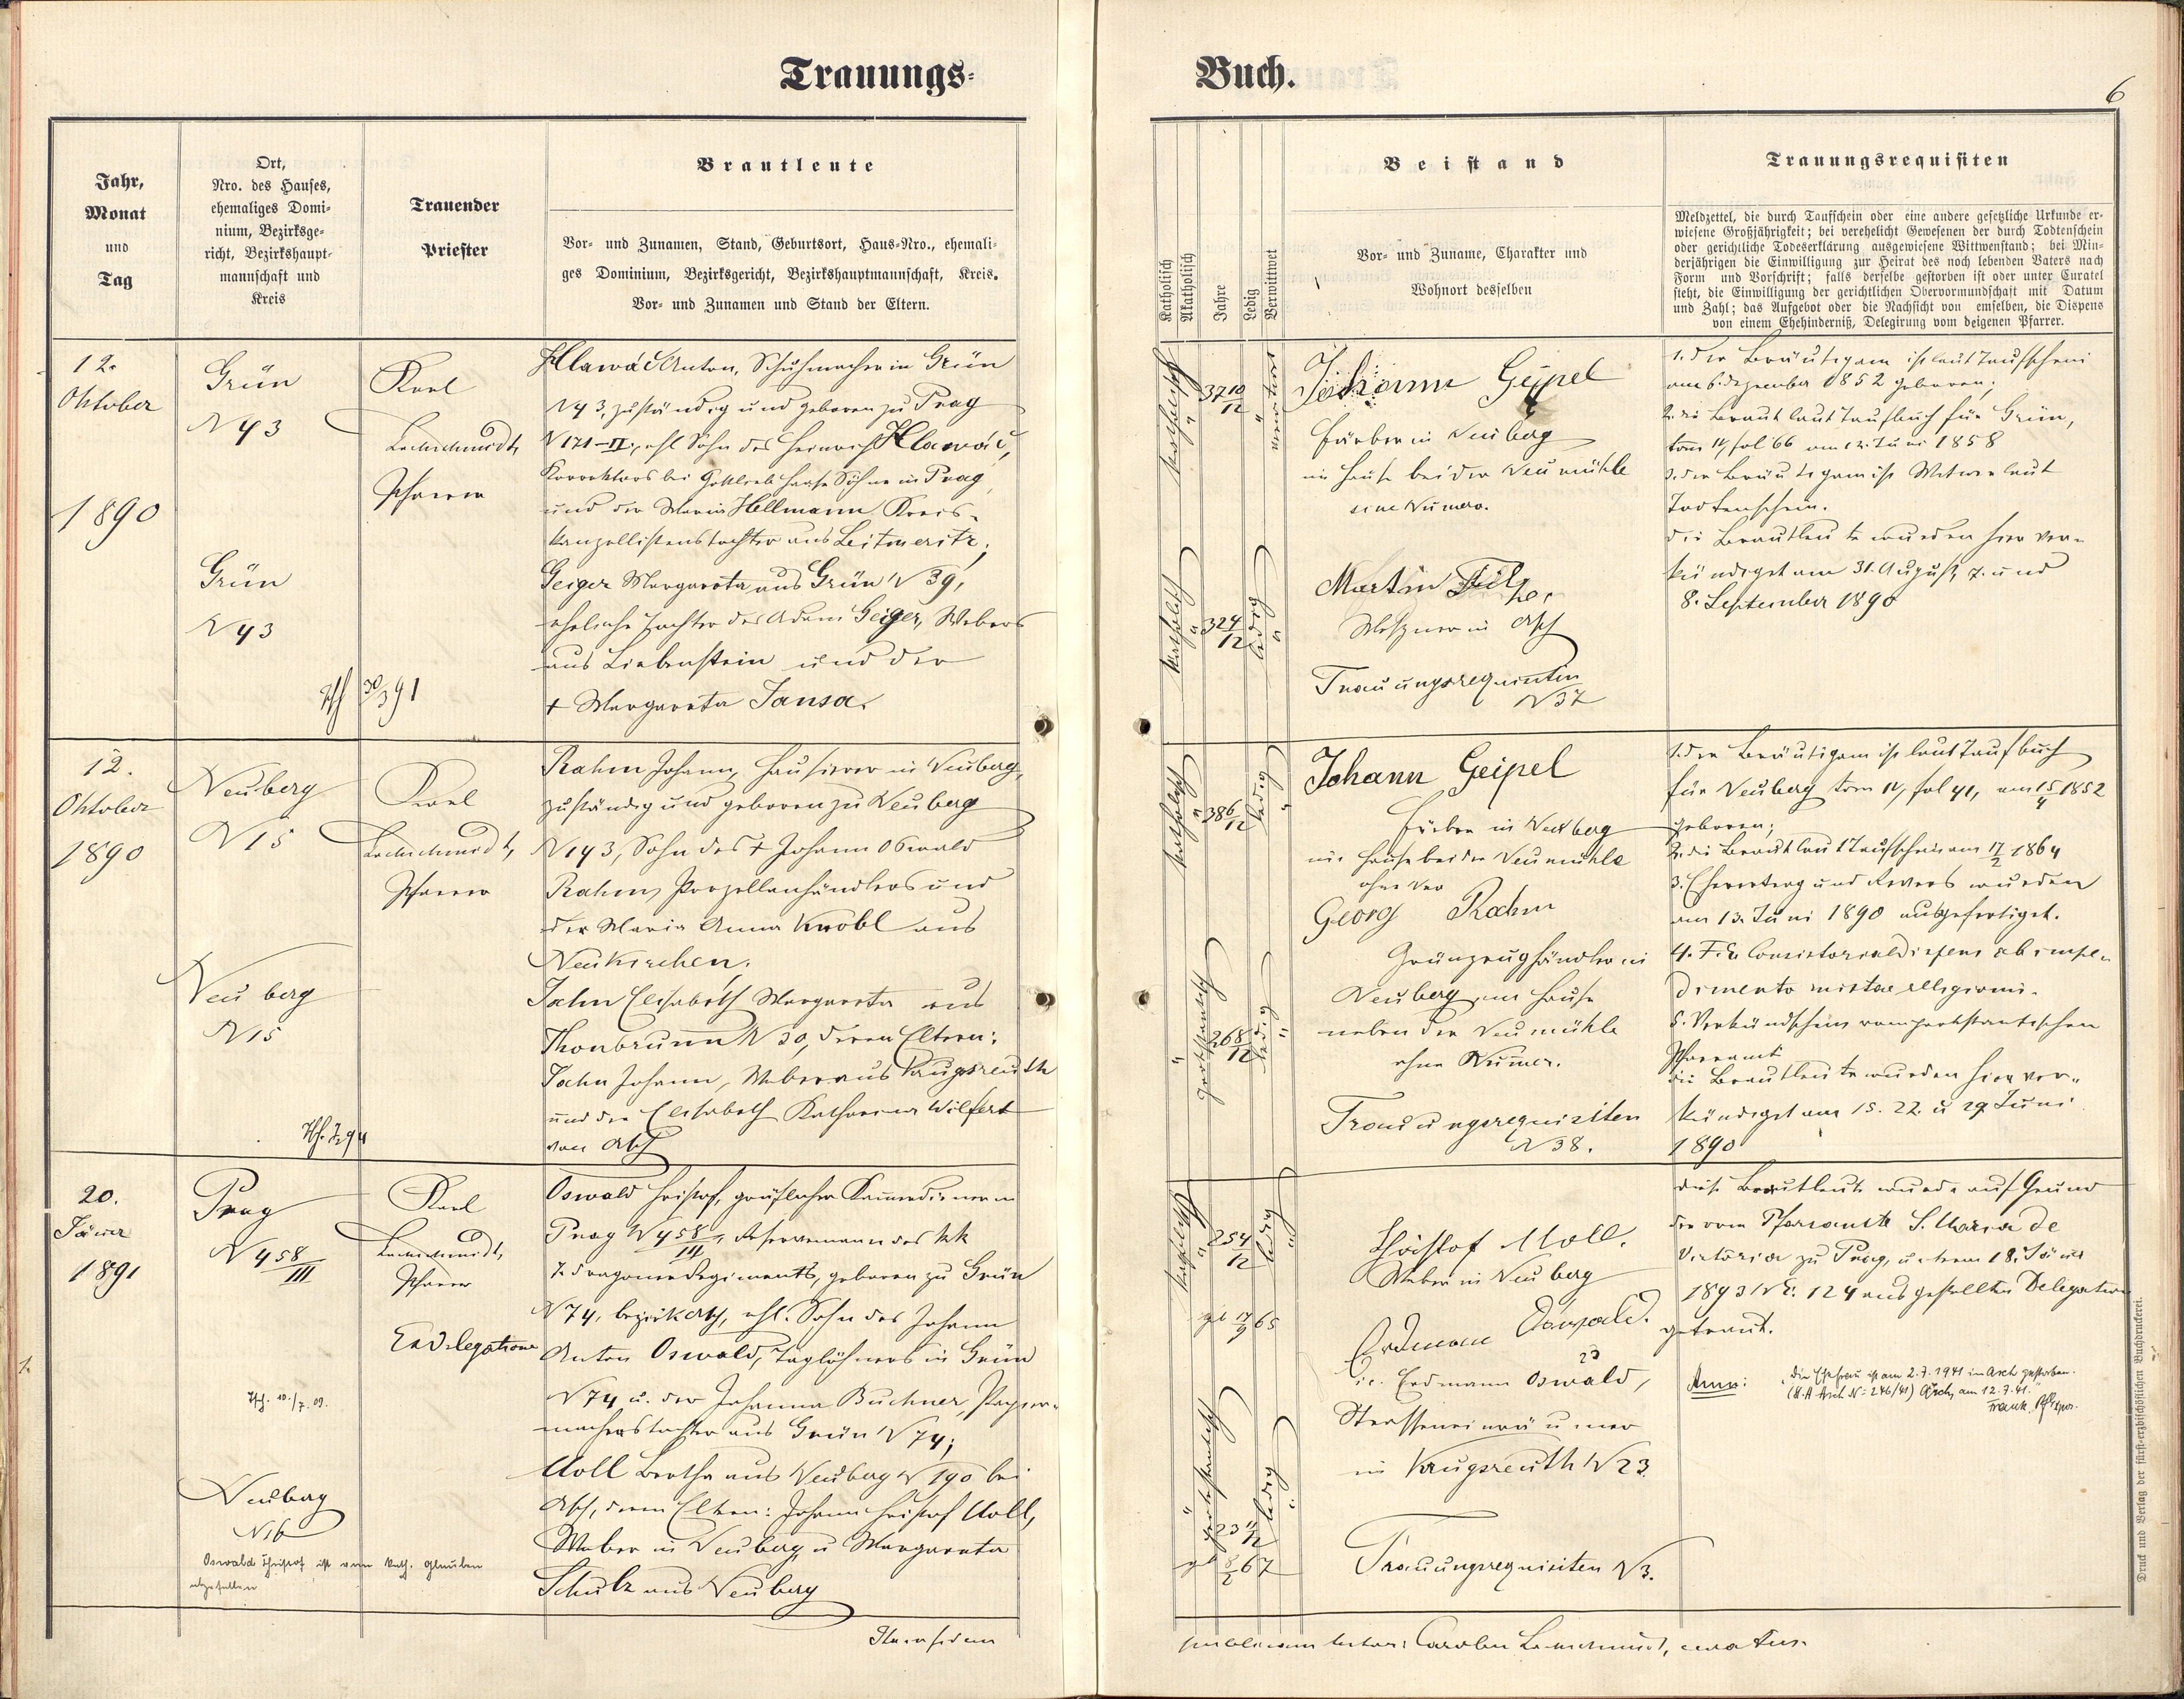 Trauungs-
Buch.
6
Jahr,
Monat
und
Tag
Ort,
Nro. des Hauses,
ehemaliges Domi-
nium, Bezirksge-
richt, Bezirkshaupt-
mannschaft und
Kreis
Trauender
Priester
Brautleute
Vor- und Zunamen, Stand, Geburtsort, Haus-Nro., ehemali-
ges Dominium, Bezirksgericht, Bezirkshauptmannschaft, Kreis.
Vor- und Zunamen und Stand der Eltern.
Katholisch
Akatholisch
Jahre
Ledig
Verwittwet
Beistand
Vor- und Zuname, Charakter und
Wohnort desselben
Trauungsrequisiten
Meldzettel, die durch Taufschein oder eine andere gesetzliche Urkunde er-
wiesene Großjährigkeit; bei verehelicht Gewesenen der durch Todtenschein
oder gerichtliche Todeserklärung ausgewiesene Wittwenstand; bei Min-
derjährigen die Einwilligung zur Heirat des noch lebenden Vaters nach
Form und Vorschrift; falls derselbe gestorben ist oder unter Curatel
steht, die Einwilligung der gerichtlichen Obervormundschaft mit Datum
und Zahl; das Aufgebot oder die Nachsicht von emselben, die Dispens
von einem Ehehinderniß, Delegirung vom deigenen Pfarrer.
12.
Oktober
1890
Grün
N 43
Grün
N 43
Karl
Pfarrer
Hlawáč Anton, Schuhmacher in Grün
N 43, zuständig und geboren zu Prag
N 171-II, ehl Sohn des Heinrich Hlawáč,
Korrektors bei Gottlieb Haase Söhne in Prag
und der Maria Hellmann Kreis-
kanzellistenstochter aus Leitmeritz;
Geiger Margareta aus Grün N 39,
eheliche Tochter des Adam Geiger, Webers
aus Liebenstein und der
+ Margareta Jansa.
katholisch
37 10/12
verwitwet
katholisch
32 4/12
ledig
Johann Geipel
Färber in Neuberg
im Hause bei der Neumühle
Martin
Meßner in Asch
Trauungsrequisiten
N 37
1. der Bräutigam ist laut Taufschein
am 6. Dezember 1852 geboren;
2. die Braut laut Taufbuch für Grün,
tom IV, fol 66 am 12. Juni 1858
3. der Bräutigam ist Witwer laut
Todtenschein.
die Brautleute wurden hier ver-
kündigt am 31. August, 7. und
8. September 1890
12.
Oktober
1890
Neuberg
N 15
Neuberg
N 15
Karl
Pfarrer
Rahm Johann, Hausierer in Neuberg,
zuständig und geboren zu Neuberg
N 143, Sohn des + Johann Oswald
Rahm, Porzellanhändlers und
der Maria Anna Knöbl aus
Neukirchen.
Jahn Elisabeth Margareta aus
Thonbrunn N 30, deren Eltern:
Jahn Johann, Weber aus Krugsreuth
und der Elisabeth Katharina Wilfert
von Asch
katholisch
38 6/12
ledig
protestantisch
26 8/12
ledig
Johann Geipel
Färber in Neuberg
im Hause bei der Neumühle
ohne Nro
Georg Rahm
Grünzeughändler in
Neuberg im Hause
neben der Neumühle
ohne Numer.
Trauungsrequisiten
N 38.
1. der Bräutigam ist laut Taufbuch
für Neuberg tom IV, fol 41, am 15/4 1852
geboren;
2. die Braut laut Taufschein am 17/2 1864
3. Ehevertrag und Revers wurden
am 13. Juni 1890 ausgefertiget.
4. F. E. Consistorialdispens ab impe-
dimento mixtae religionis.
5. Verkündschein vom protestantischen
Pfarramt
die Brautleute wurden hier ver-
kündigt am 15. 22. u 29. Juni
1890
20.
Jänner
1891
Prag
N 458/III
Neuberg
N 16
Oswald Christof ist vom kath. Glauben
abgefallen
Karl
Pfarrer
Ex delegatione
Oswald Christof, gräflicher Kammerdiener in
Prag N 458/III, Reservemann des kk
7. Dragonerregiments, geboren zu Grün
N 74, bezirk Asch, ehl. Sohn des Johann
Anton Oswald, Taglöhners in Grün
N 74 u. der Johanna Buchner, Papier-
macherstochter aus Grün N 74;
Moll Bertha aus Neuberg N 190 bei
Asch, deren Eltern: Johann Christof Moll,
Weber in Neuberg u Margareta
Schulz aus Neuberg
katholisch
25 4/12
ledig
protestantisch
23 11/12
ledig
Christof Moll.
Weber in Neuberg
Erdmann Oswald.
i.e. Erdmann Oswald,
Strasseneinräumer
in Krugsreuth N 23
Trauungsrequisiten N 3.
diese Brautleute wurde auf Grund
der vom Pfarramte S. Maria de
Victoria zu Prag, unterm 18. Jänner
ausgestellten Delegation
getraut.
Anm: Die Ehefrau ist am 2.7.1941 in Asch gestorben.
(St. A Asch N: 246/41) Asch, am 12.7.41.
Druck und Verlag der fürst-erzbischöflichen Buchdruckerei.